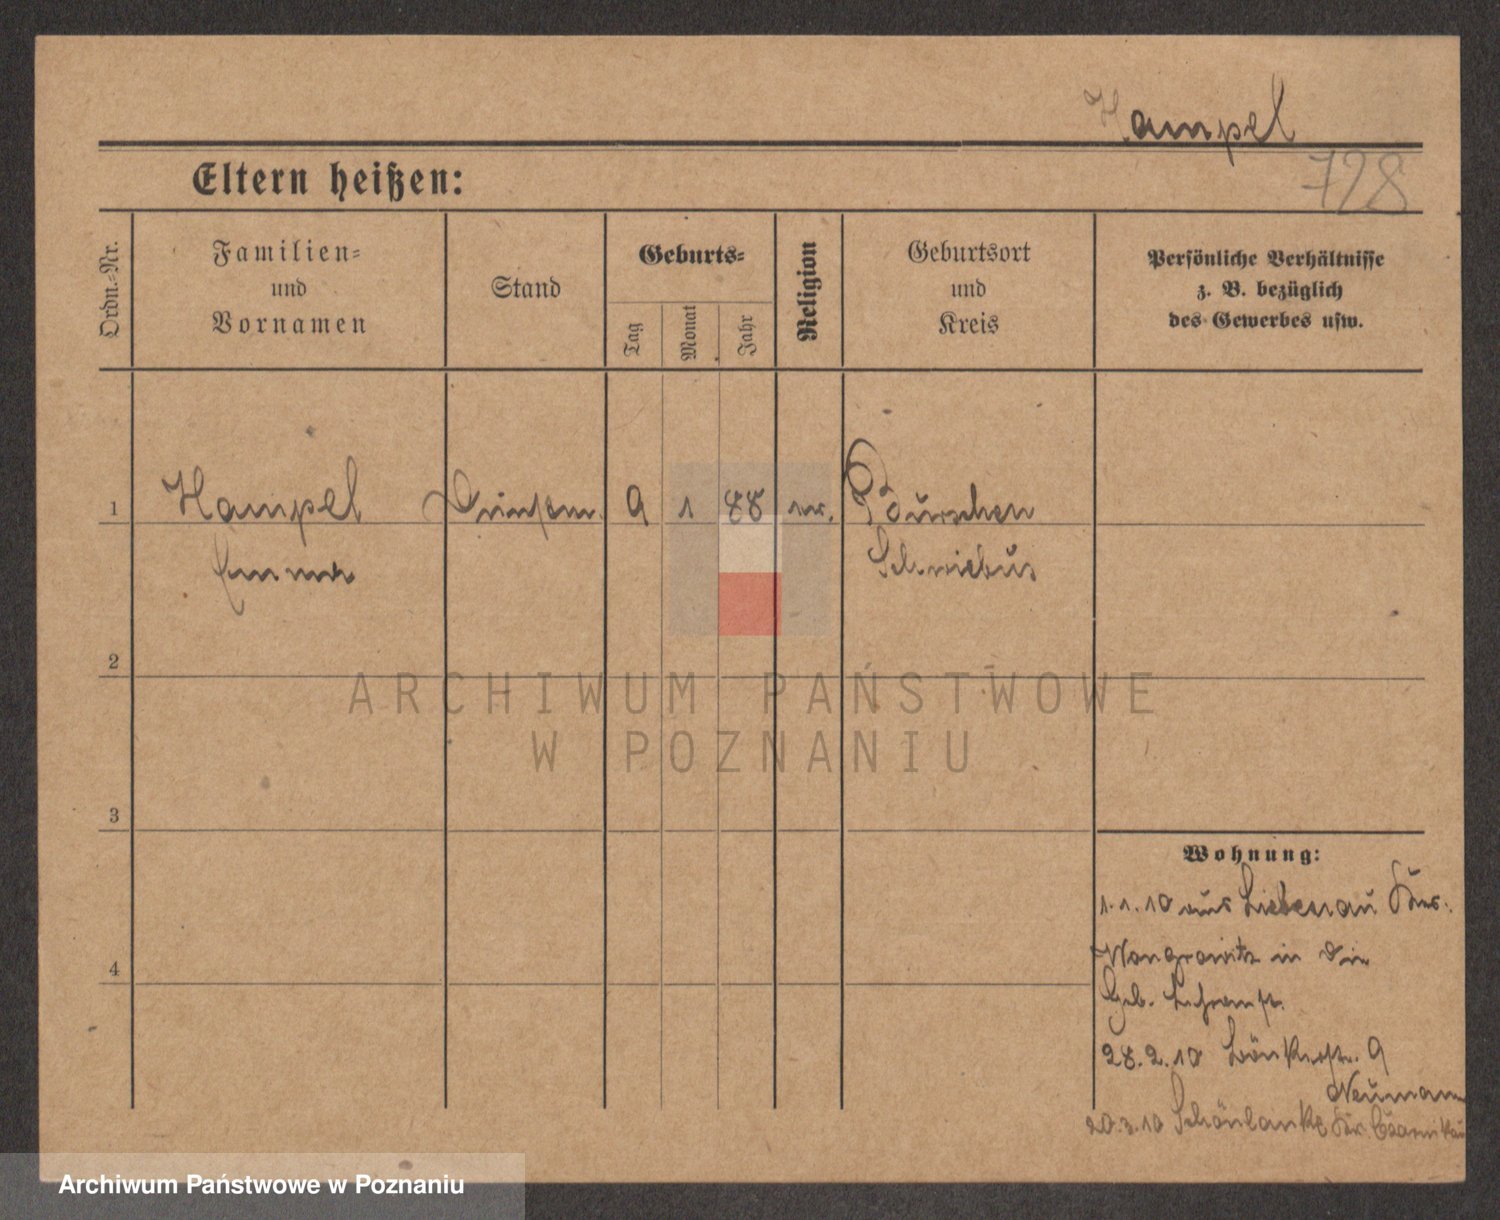 Hampel
798
Eltern heißen:
Ordn.-Nr.
Familien-
und
Vornamen
Stand
Geburts-
Tag
Monat
Jahr
Religion
Geburtsort
und
Kreis
Persönliche Verhältnisse
z. B. bezüglich
des Gewerbes usw.
1 Hampel 9 1 88 Burschen
Emma Schwiebus
2
3
4
Wohnung:
1.1.10 aus Liebenau Krs.
Wongrowitz in die
Geb.
28.2.10 9
Neumann
20.3.10 Schönlanke Kr. Czarnikau
ARCHIWUM PAŃSTWOWE
W POZNANIU
Archiwum Państwowe w Poznaniu